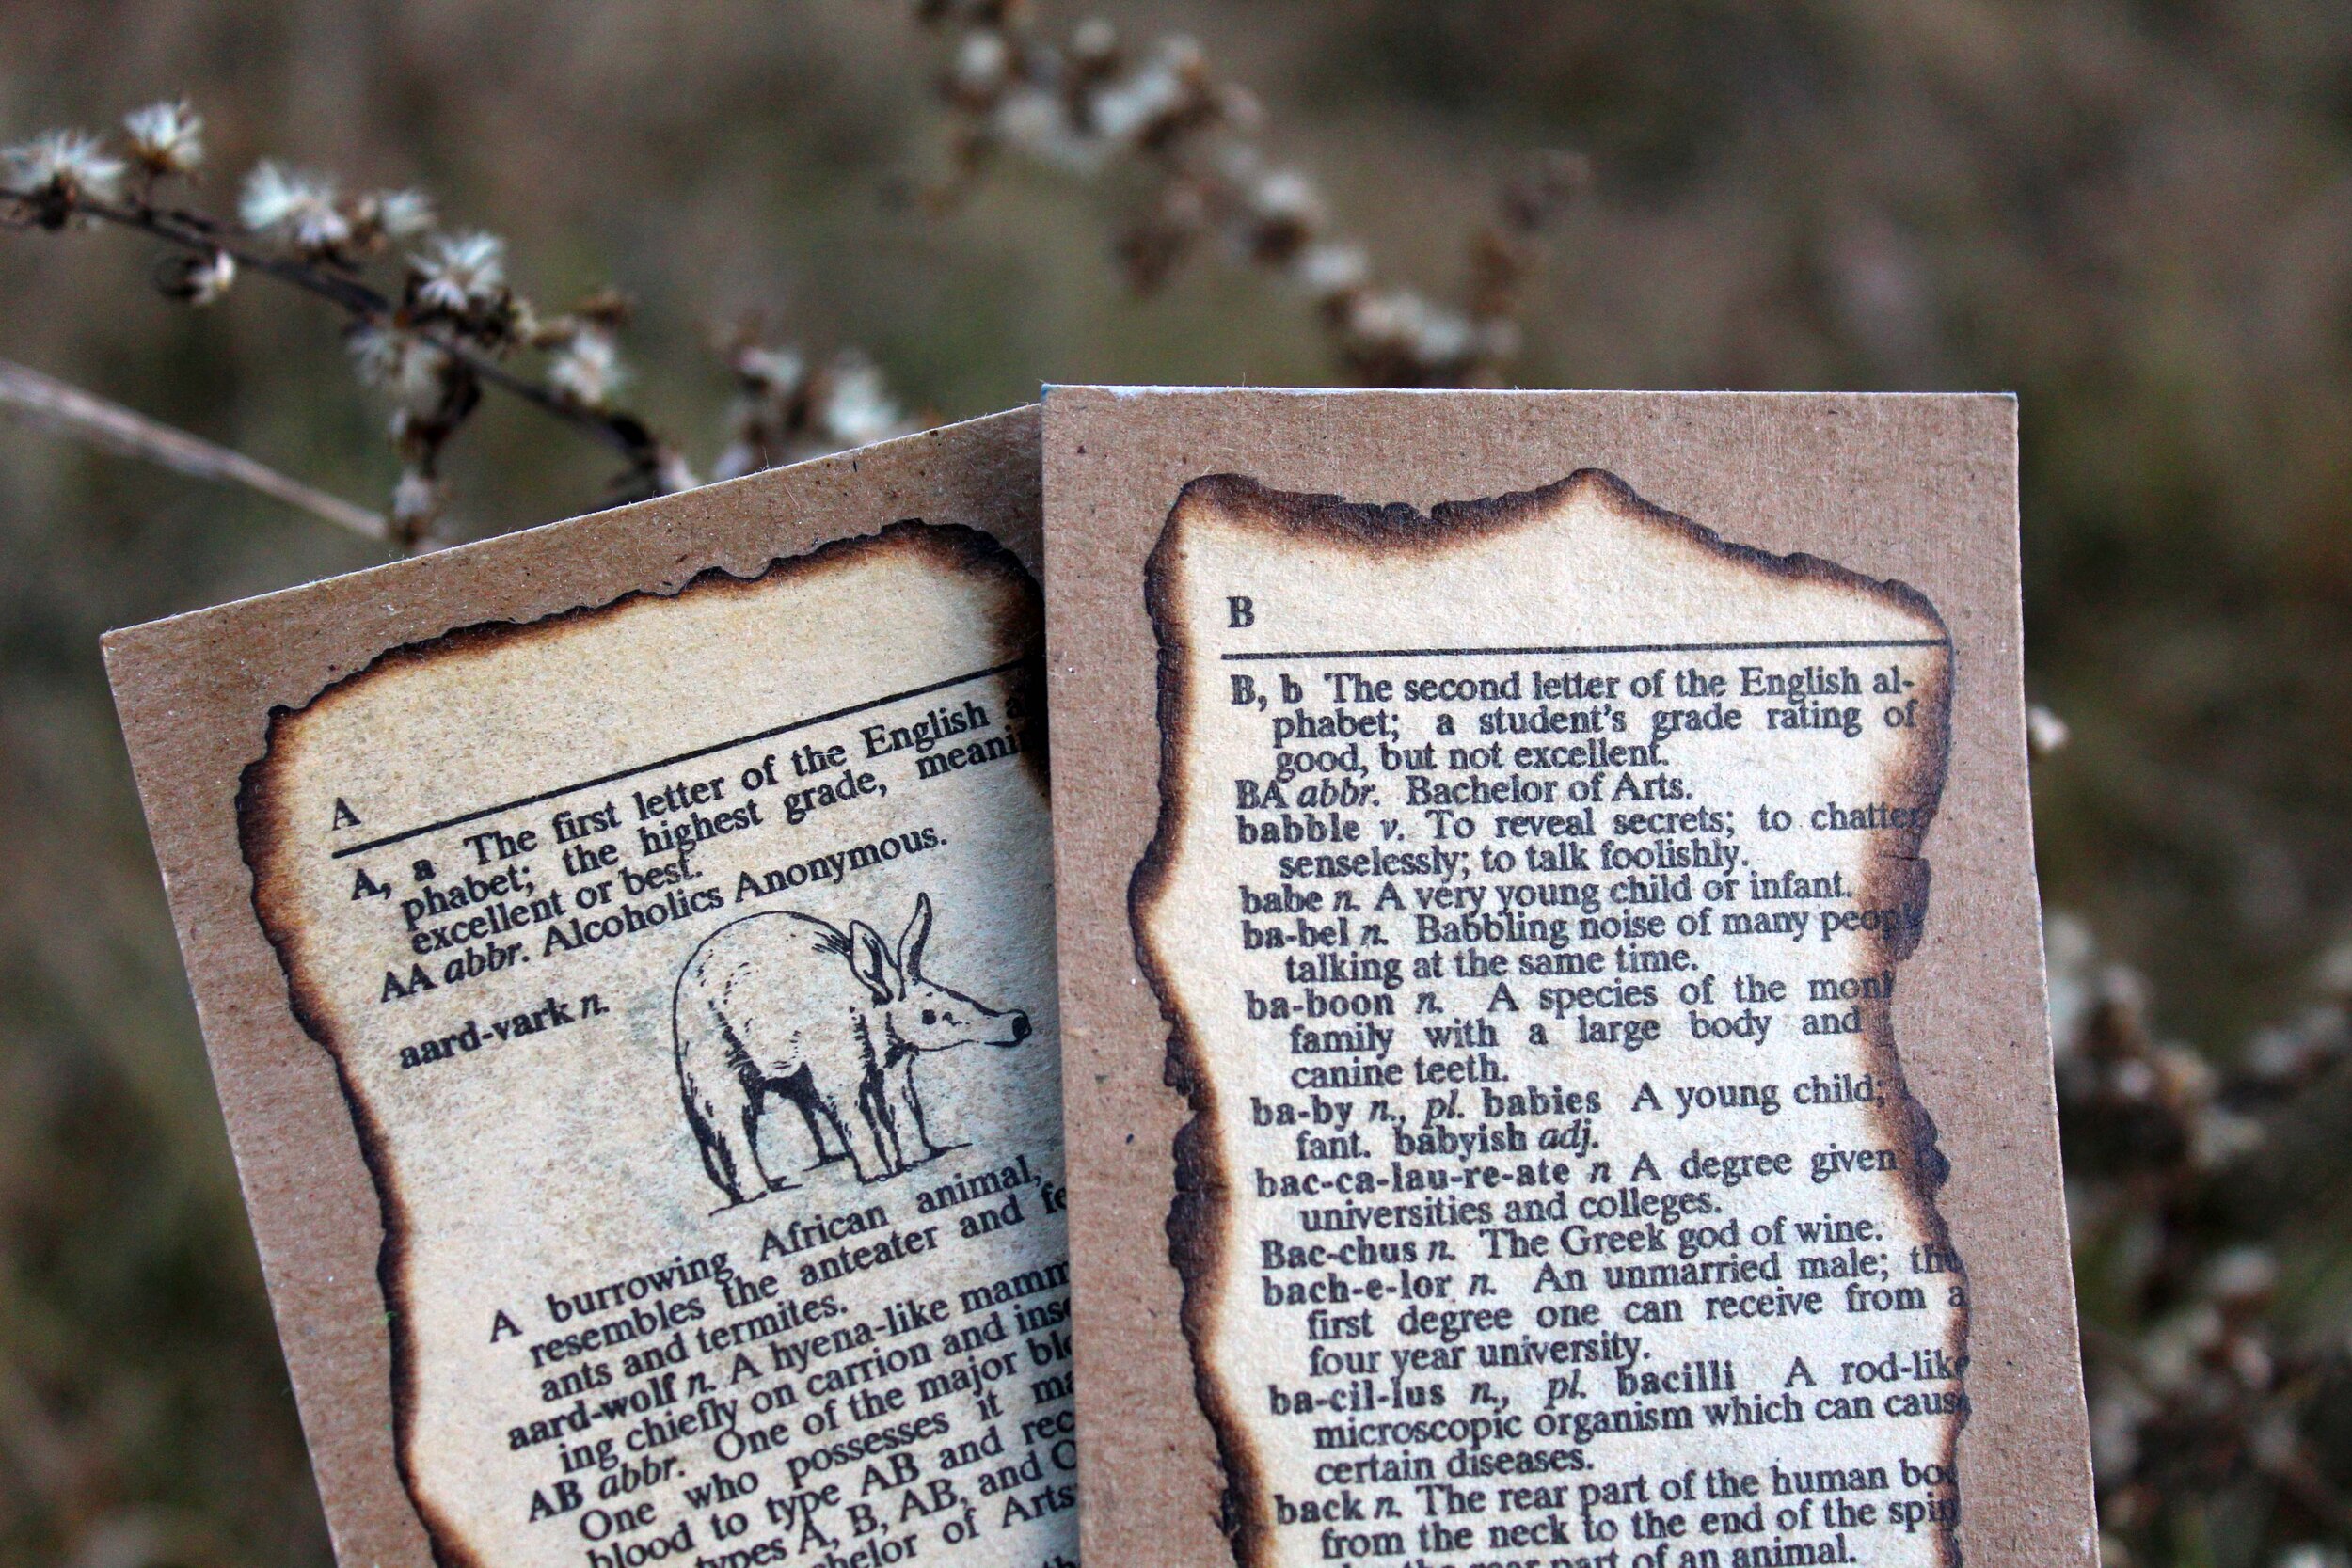 A
A, a The first letter of the English
phabet; the highest grade,
excellent or best.
AA abbr. Alcoholics Anonymous.
aard-vark n.
A burrowing African animal,
resembles the anteater and
ants and termites.
aard-wolf n. A hyena-like
ing chiefly on carrion and
AB abbr. One of the major
One who possesses it
blood to type AB and
types A, B, AB, and
of Arts
B
B, b The second letter of the English al-
phabet; a student's grade rating of
good, but not excellent.
BA abbr. Bachelor of Arts.
babble v. To reveal secrets; to chatter
senselessly; to talk foolishly.
babe n. A very young child or infant.
ba-bel n. Babbling noise of many
talking at the same time.
ba-boon n. A species of the
family with a large body and
canine teeth.
ba-by n., pl. babies A young child;
fant. babyish adj.
bac-ca-lau-re-ate n A degree given
universities and colleges.
Bac-chus n. The Greek god of wine.
bach-e-lor n. An unmarried male; the
first degree one can receive from a
four year university.
ba-cil-lus n., pl. bacilli A rod-like
microscopic organism which can cause
certain diseases.
back n. The rear part of the human
from the neck to the end of the
the rear part of an animal.